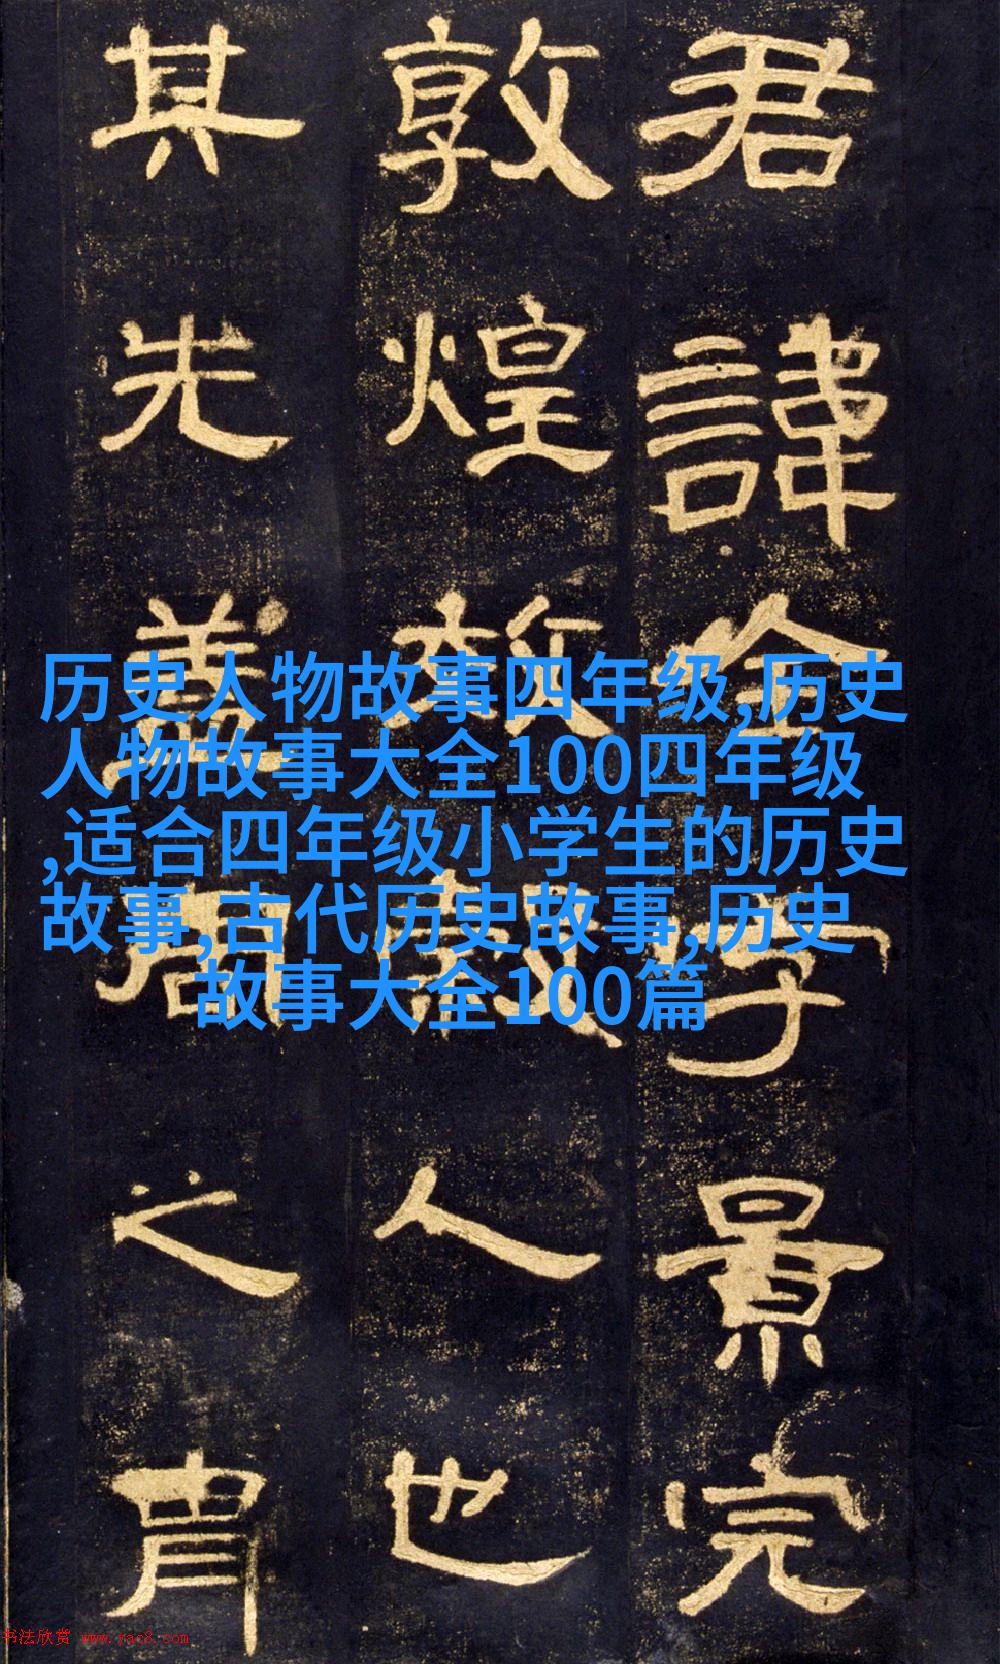 君諱全字景完
敦煌效穀人也
其先蓋周之胄
历史人物故事四年级,历史
人物故事大全100四年级
,适合四年级小学生的历史
故事,古代历史故事,历史
故事大全100篇
书法欣赏 www.yac8.com